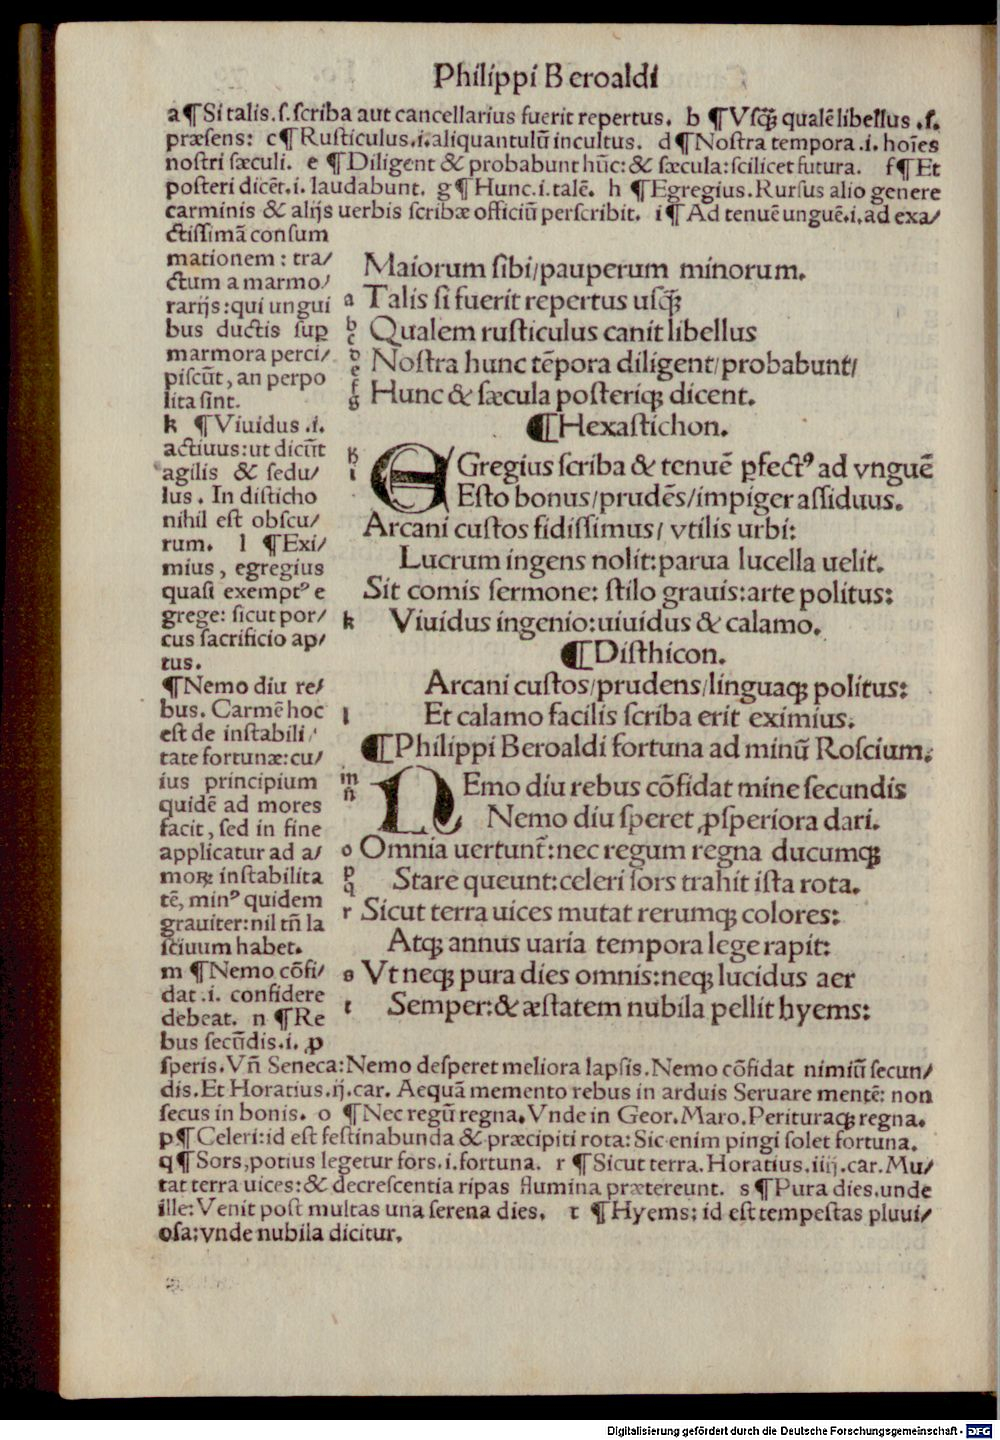 Philippi Beroaldi
a ¶ Si talis.ſ.ſcriba aut cancellarius fuerit repertus. b ¶ Vſcꝗ̃ qualē libellus .ſ.
præſens: c ¶ Ruſticulus.i.aliquantulū incultus. d ¶ Noſtra tempora .i. hoīes
noſtri ſæculi. e ¶ Diligent & probabunt hūc: & ſæcula:ſcilicet futura. f ¶ Et
poſteri dicēt.i. laudabunt. g ¶ Hunc.i.talē. h ¶ Egregius.Rurſus alio genere
carminis & alijs uerbis ſcribæ officiū perſcribit. i ¶ Ad tenuē unguē.i.ad exa/
ctiſſimā conſum
mationem : tra/
ctum a marmo/
rarijs:qui ungui
bus ductis ſuꝑ
marmora perci/
piſcūt, an perpo
lita ſint.
k ¶ Viuidus .i.
actiuus:ut dicūt
agilis & ſedu/
lus . In diſticho
nihil eſt obſcu/
rum. l ¶ Exi/
mius, egregius
quaſi exemptꝰ e
grege: ſicut por/
cus ſacrificio ap/
tus.
¶ Nemo diu re/
bus. Carmē hoc
eſt de inſtabili/
tate fortunæ:cu/
ius principium
quidē ad mores
facit, ſed in fine
applicatur ad a/
moꝝ inſtabilita
tē, minꝰ quidem
grauiter:nil tñ la
ſciuum habet.
m ¶ Nemo cōfi/
dat .i. confidere
debeat. n ¶ Re
bus ſecūdis.i. ꝓ
Maiorum ſibi/pauperum minorum.
a Talis ſi fuerit repertus uſꝗ̃
b c Qualem ruſticulus canit libellus
d e Noſtra hunc tēpora diligent/probabunt/
f g Hunc & ſæcula poſteriꝗ dicent.
¶ Hexaſtichon.
h EGregius ſcriba & tenuē ꝑfectꝰ ad vnguē
i Eſto bonus/prudēs/impiger aſſiduus.
Arcani cuſtos fidiſſimus/ vtilis urbi:
Lucrum ingens nolit:parua lucella uelit.
Sit comis ſermone: ſtilo grauis:arte politus:
k Viuidus ingenio:uiuidus & calamo.
¶ Diſthicon.
Arcani cuſtos/prudens/linguaꝗ politus:
l Et calamo facilis ſcriba erit eximius.
¶ Philippi Beroaldi fortuna ad minū Roſcium.
m n NEmo diu rebus cōfidat mine ſecundis
Nemo diu ſperet ꝓſperiora dari.
o Omnia uertunt̄:nec regum regna ducumꝗ
p q Stare queunt:celeri ſors trahit iſta rota.
r Sicut terra uices mutat rerumꝗ colores:
Atꝗ annus uaria tempora lege rapit:
s Vt neꝗ pura dies omnis:neꝗ lucidus aer
t Semper:& æſtatem nubila pellit hyems:
ſperis.Vñ Seneca:Nemo deſperet meliora lapſis.Nemo cōfidat nimiū ſecun/
dis.Et Horatius.ij.car. Aequā memento rebus in arduis Seruare mentē: non
ſecus in bonis. o ¶ Nec regū regna.Vnde in Geor.Maro.Perituraꝗ regna.
p ¶ Celeri:id eſt feſtinabunda & præcipiti rota: Sic enim pingi ſolet fortuna.
q ¶ Sors,potius legetur fors.i.fortuna. r ¶ Sicut terra. Horatius.iiij.car.Mu/
tat terra uices:& decreſcentia ripas flumina prætereunt. s ¶ Pura dies.unde
ille: Venit poſt multas una ſerena dies. t ¶ Hyems: id eſt tempeſtas pluui/
oſa:vnde nubila dicitur.
Digitalisierung gefördert durch die Deutsche Forschungsgemeinschaft - DFG